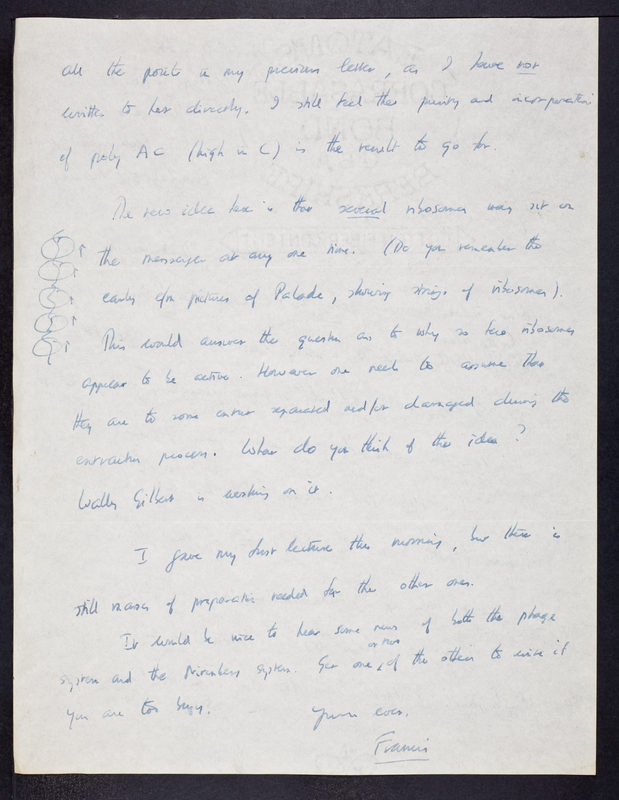 all the points in my previous letter, as I have not
written to her directly. I still feel the purity and incorporation
of poly AC (high in C) is the result to go for.
The new idea here is that several ribosomes may sit on
the messenger at any one time. (Do you remember the
early e/m pictures of Palade, showing strings of ribosomes).
This would answer the question as to why so few ribosomes
appear to be active. However one needs to assume that
they are to some extent separated and/or damaged during the
extraction process. What do you think of this idea?
Wally Gilbert is working on it.
I gave my first lecture this morning, but there is
still masses of preparation needed for the other ones.
It would be nice to hear some news of both the phage
system and the Nirenberg system. Get one or two of the others to write if
you are too busy.
Yours ever,
Francis